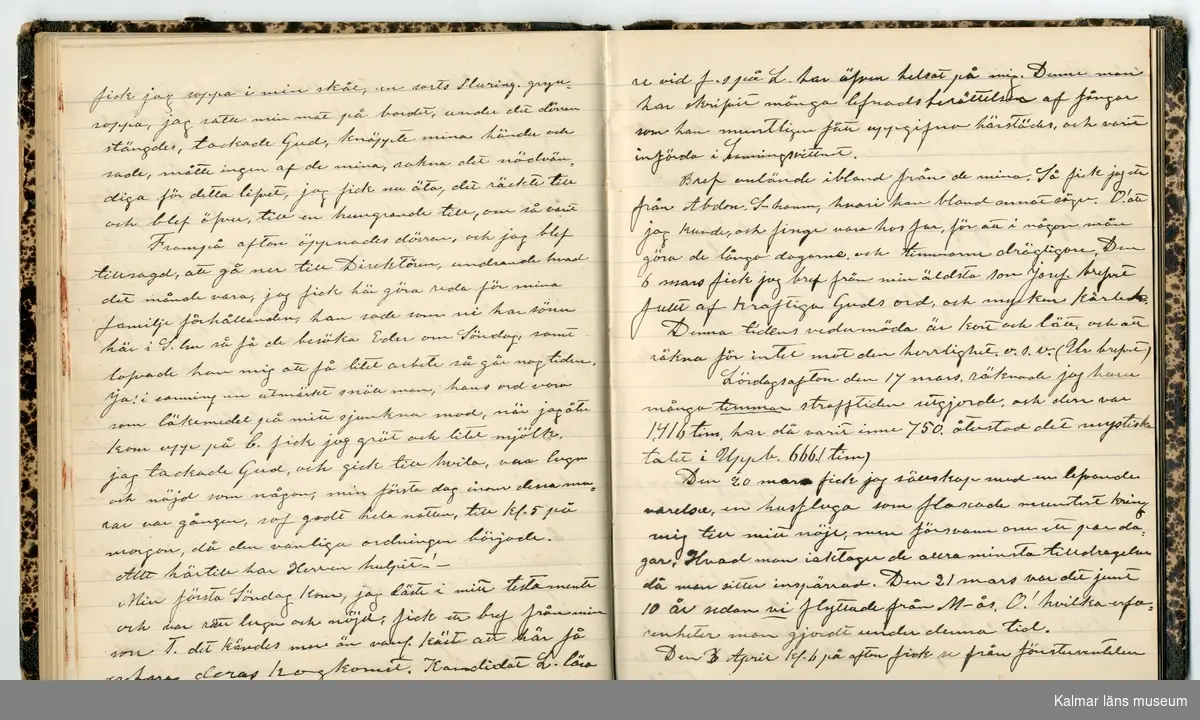 fick jag soppa i min skål, en sorts Sluring. gryn-
soppa, jag satte min mat på bordet, under det dörren
stängdes, tackade Gud, knäppte mina händer och
sade, måtte ingen af de mina, sakna det nödvän-
diga för detta lifvet, jag fick nu äta, det räckte till
och blef öfver, till en hungrande till, om så varit
Frampå afton öppnades dörren, och jag blef
tillsagd, att gå ner till Direktören, undrande hvad
det månde vara, jag fick här göra reda för mina
familje förhållanden, han sade som ni har söner
här i S. hm så få de besöka Eder om Söndag, samt
lofvade han mig att få litet arbete så går nog tiden.
Ja! i sanning en utmärkt snäll man, hans ord voro
som läkemedel på mitt sjunkna mod, när jag åter
kom upp på C. fick jag gröt och litet mjölk,
jag tackade Gud, och gick till hvila, var lugn
och nöjd som någon, min första dag inom dessa mu-
rar var gången, sof godt hela natten, till kl. 5 på
morgon, då den vanliga ordningen började.
Allt härtill har Herren hulpit! –
Min första Söndag kom, jag läste i mitt testamente
och var rätt lugn och nöjd, fick ett bref från min
son T. det kändes mer än vanl. kärt att här få
deras hogkomst. Kandidat L. lära
re vid f. s på L. har äfven helsat på mig. Denne man
har skrifvit många lefnadsberättelser af fångar
som han muntligen fått uppgifna härstädes, och varit
införda i Sanningsvittnet.
Bref anlände ibland från de mina. Så fick jag ett
från Abdon. S-hamn, hvari han bland annat säger. O! att
jag kunde, och finge vara hos far, för att i någon mån
göra de långa dagarne, och timmarne drägligare. Den
6 mars fick jag bref från min äldsta son Josef brefvet
fullt af kraftiga Guds ord, och mycken kärlek.
Denna tidens vedermöda är kort och lätt, och att
räkna för intet mot den herrlighet, o. s. v. (Ur brefvet)
Lördagsafton den 17 mars, räknade jag huru
många timmar strafftiden utgjorde, och den var
1,416 tim, har då varit inne 750. återstod det mystiska
talet i Uppb. 666. (tim)
Den 20 mars fick jag sällskap med en lefvande
varelse, en husfluga som flaxade muntert kring
mig till mitt nöje, men försvann om ett par da-
gar. Hvad man iakttager de allra minsta tilldragelser
då man sitter inspärrad. Den 21 mars var det jemt
10 år sedan vi flyttade från M-ås, O! hvilka erfa-
renheter man gjordt under denna tid.
Den 3 April kl. 6 på afton fick se från fönsterventilen
Kalmar läns museum